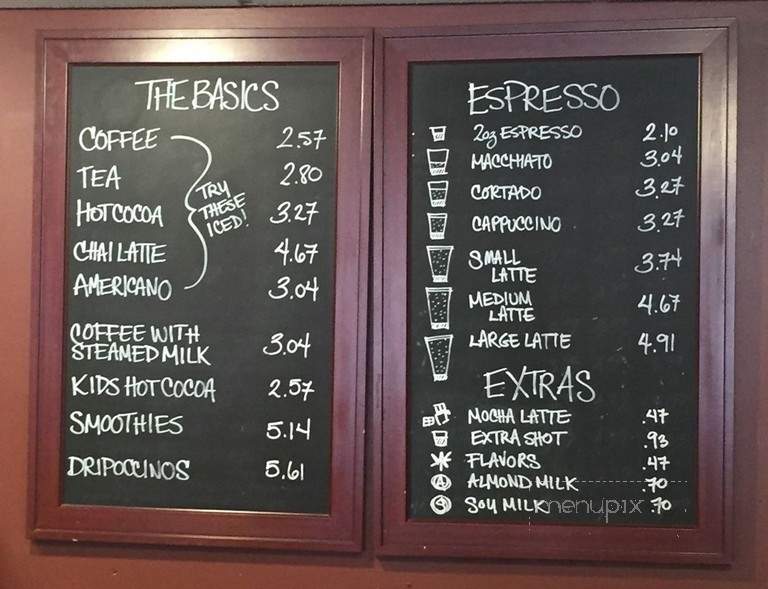 THE BASICS
COFFEE 2.57
TEA 2.80
HOT COCOA 3.27
CHAI LATTE 4.67
AMERICANO 3.04
TRY
THESE
ICED!
COFFEE WITH
STEAMED MILK 3.04
KIDS HOT COCOA 2.57
SMOOTHIES 5.14
DRIPOCCINOS 5.61
ESPRESSO
2oz ESPRESSO 2.10
MACCHIATO 3.04
CORTADO 3.27
CAPPUCCINO 3.27
SMALL
LATTE 3.74
MEDIUM
LATTE 4.67
LARGE LATTE 4.91
EXTRAS
MOCHA LATTE .47
EXTRA SHOT .93
FLAVORS .47
A ALMOND MILK .70
S SOY MILK .70
menupix